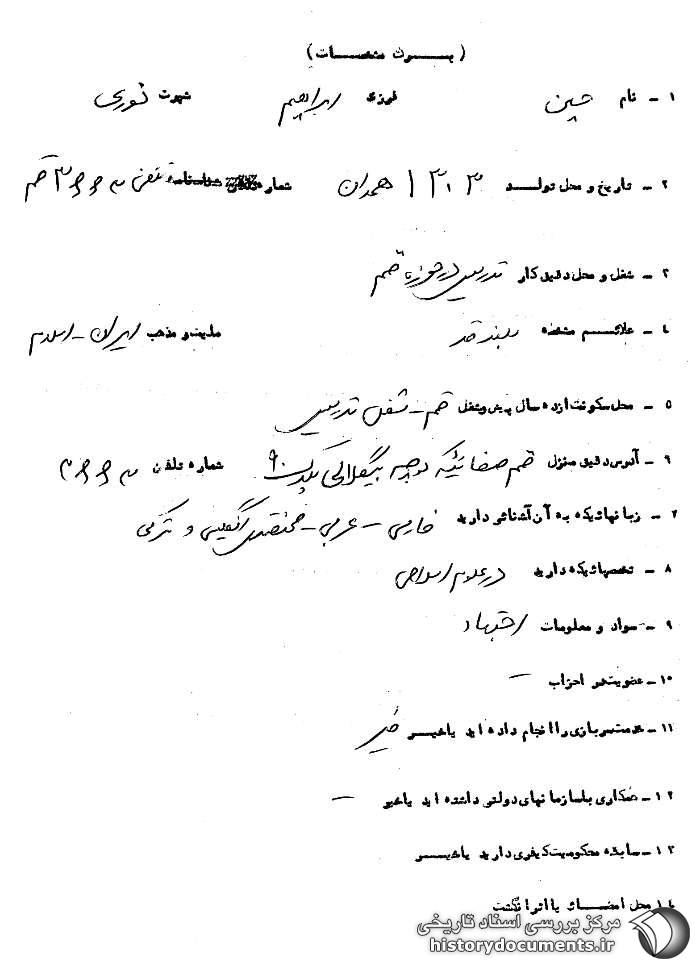 (بــرگ مشخصــات)
۱ - نام حسین فرزند ابراهیم شهرت نوری
۲ - تاریخ و محل تولــد ۱۳۱۳ همدان شماره شناسنامه تلفن ۳۶۶۳ قم
۳ - شغل و محل دقیق کار تدریس در حوزه قم
٤ - علائــم مشخصه بلند قد ملیت و مذهب ایران - اسلام
۵ - محل سکونت از ده سال پیش و شغل قم - شغل تدریس
۶ - آدرس دقیق منزل قم صفائیه کوچه بیگدلی پلاک ۹۰ شماره تلفن ۳۶۶۳
۷ - زبانهائیکه به آن آشنائی دارید فارسی - عربی - مختصری انگلیسی و ترکی
۸ - تخصصهائیکه دارید در علوم اسلامی
۹ - سواد و معلومات اجتهاد
۱۰ - عضویت در احزاب -
۱۱ - خدمت سربازی را انجام داده اید یا خیــر خیر
۱۲ - همکاری با سازمانهای دولتی داشته اید یا خیر -
۱۳ - سابقه محکومیت کیفری دارید یا خیــر
۱٤ محل امضــاء یا اثر انگشت
مرکز بررسی اسناد تاریخی
historydocuments.ir